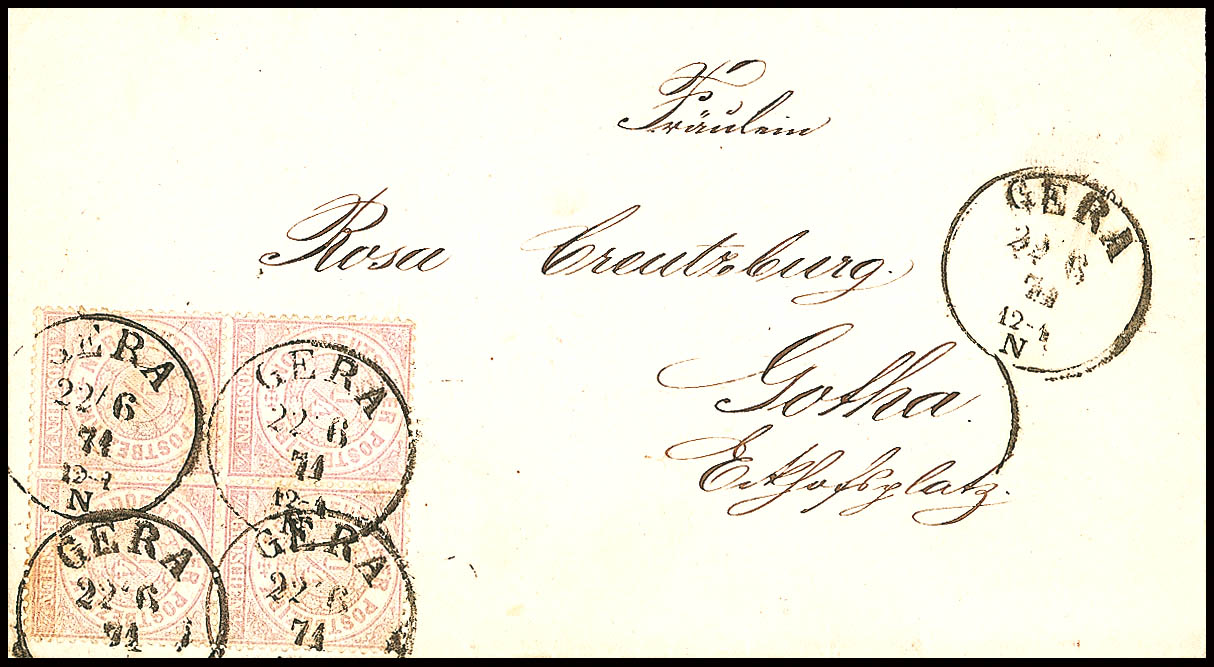 Fräulein
Rosa Creutzburg.
Gotha.
Eckhofsplatz.
GERA
22 6
71
12-1
N
GERA
22 6
71
12-1
N
GERA
22 6
71
12-1
N
GERA
22 6
71
GERA
22 6
71